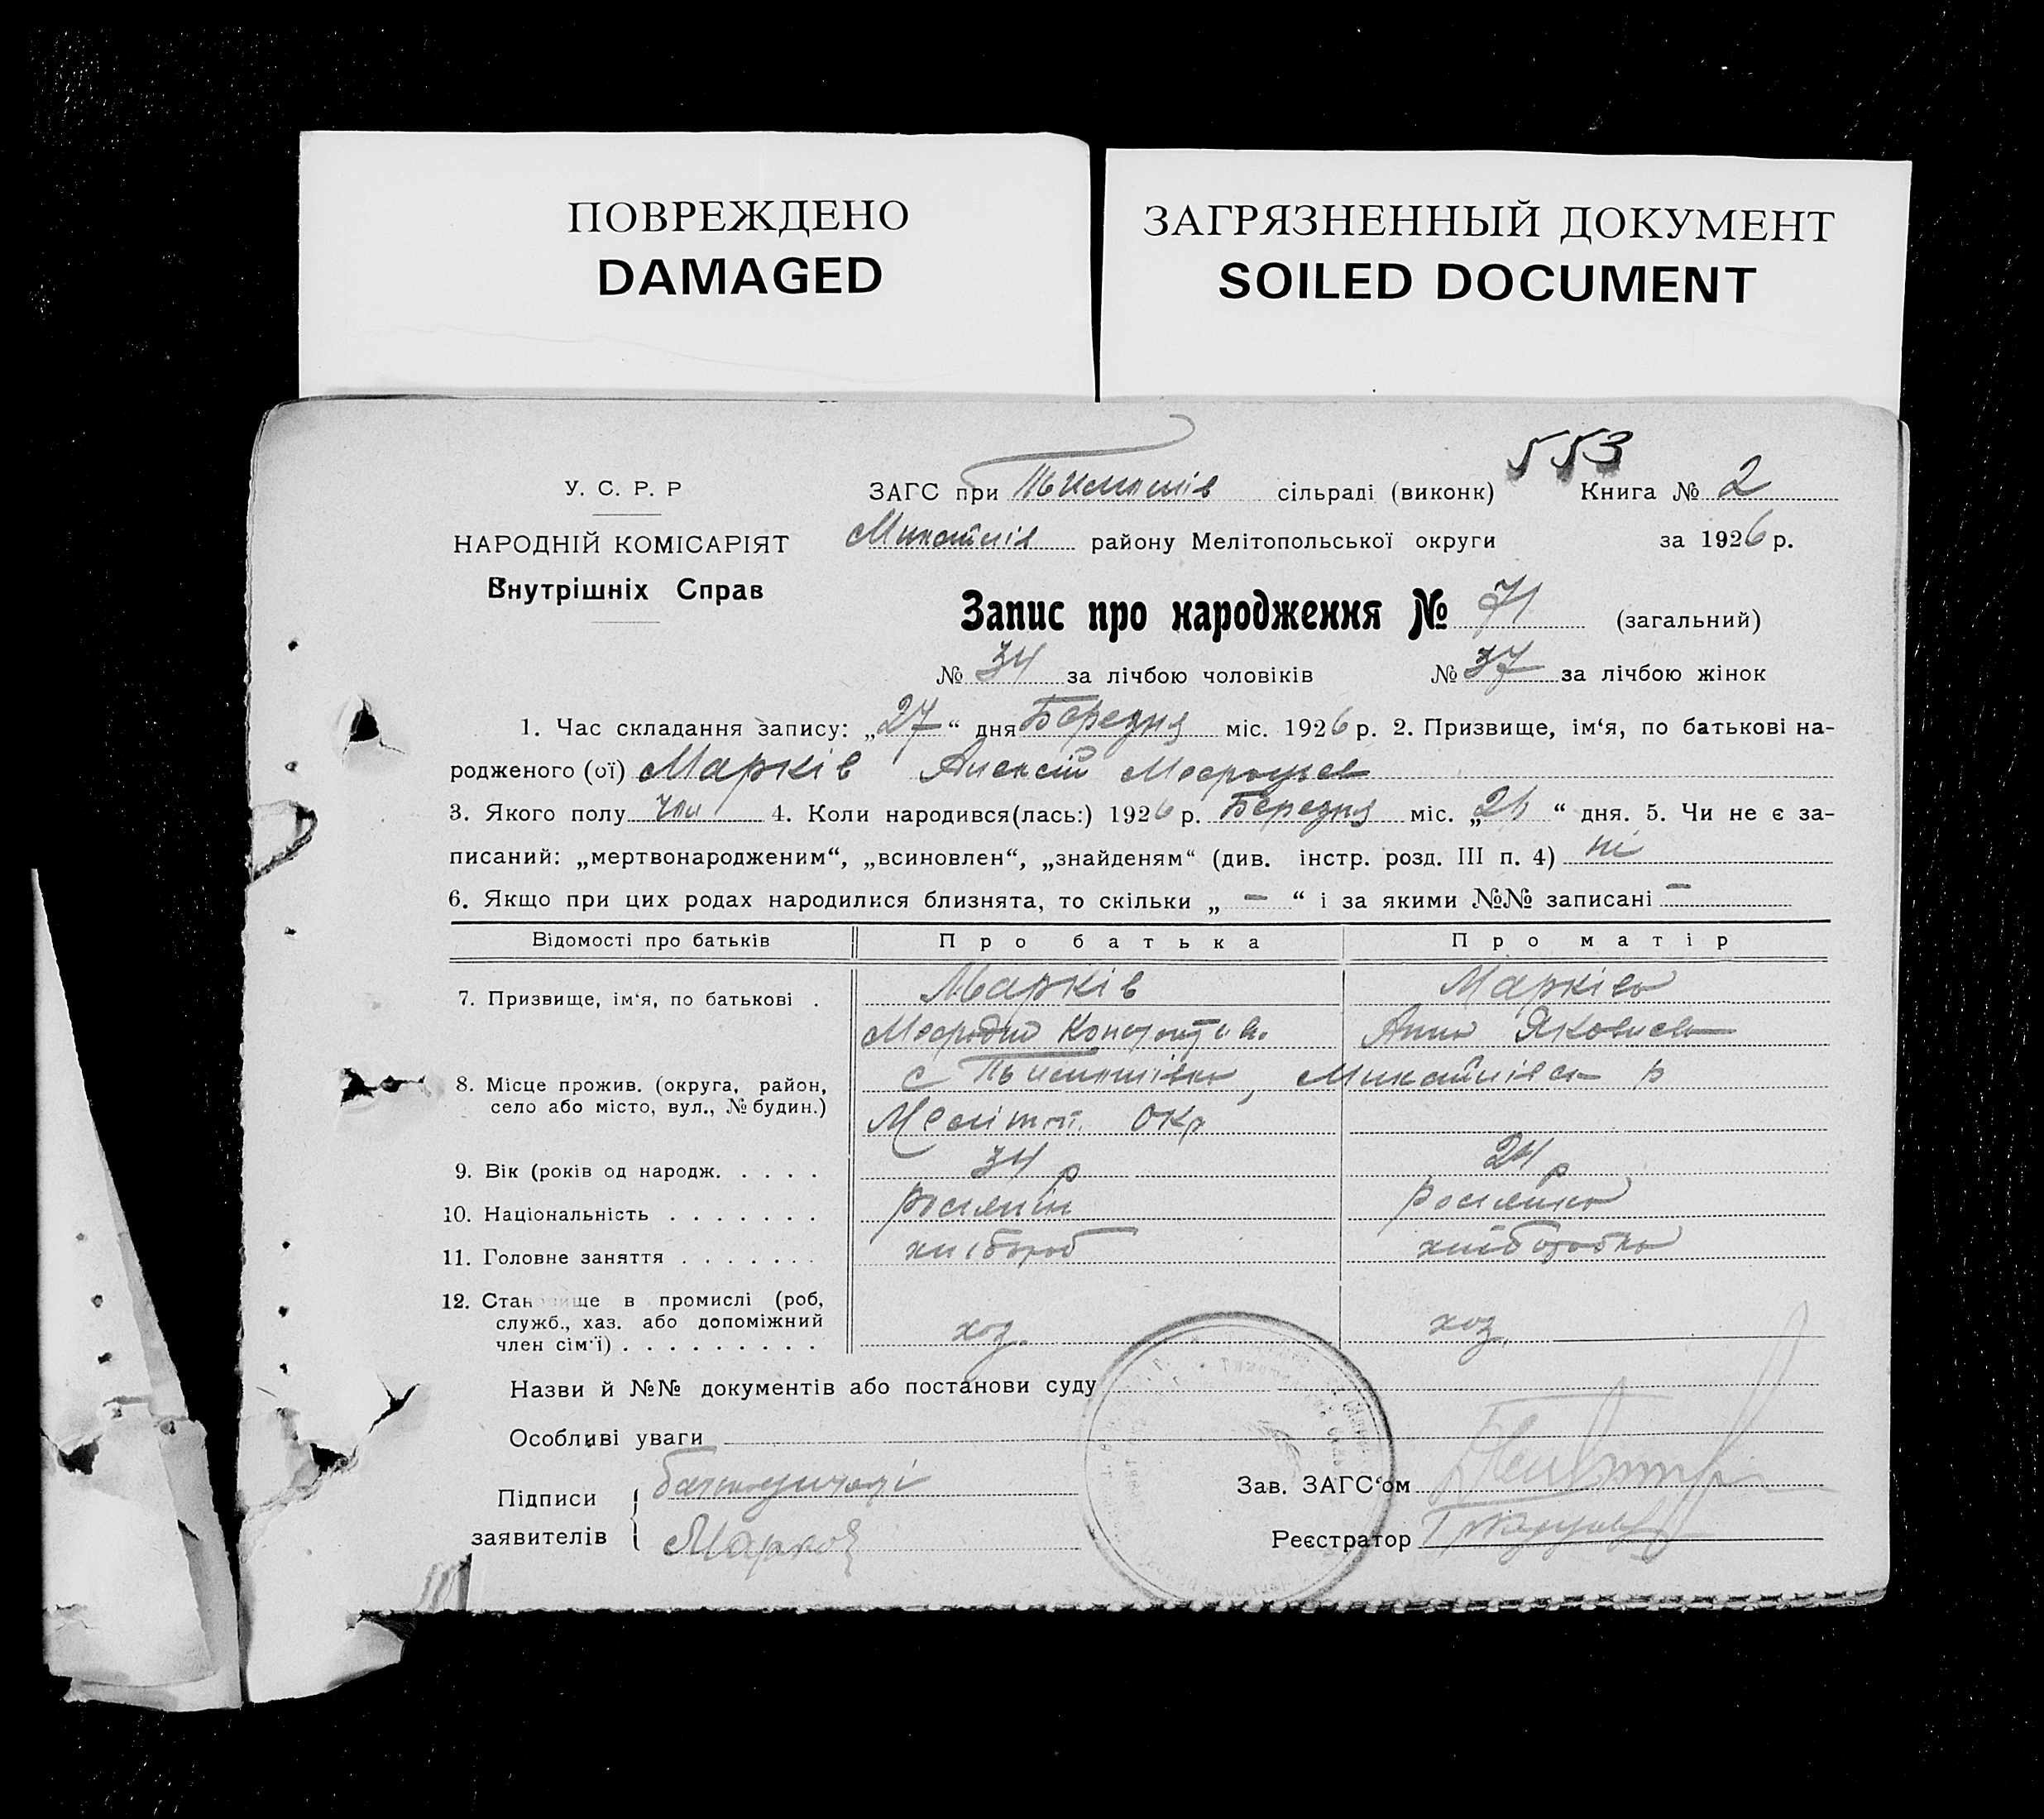 ПОВРЕЖДЕНО
DAMAGED
ЗАГРЯЗНЕННЫЙ ДОКУМЕНТ
SOILED DOCUMENT
553
У. С. Р. Р
НАРОДНІЙ КОМІСАРІЯТ
Внутрішніх Справ
ЗАГС при сільраді (виконк) Книга № 2
району Мелітопольської округи за 1926 р.
Запис про народження № 71 (загальний)
№ 34 за лічбою чоловіків № 37 за лічбою жінок
1. Час складання запису: „27“ дня Березня міс. 1926 р. 2. Призвище, ім‘я, по батькові на-
родженого (ої) Марків Алексій
3. Якого полу чол 4. Коли народився(лась:) 1926 р. Березня міс. „ “ дня. 5. Чи не є за-
писаний: „мертвонародженим“, „всиновлен“, „знайденям“ (див. інстр. розд. III п. 4) ні
6. Якщо при цих родах народилися близнята, то скільки „ – “ і за якими №№ записані –
Відомості про батьків Про батька Про матір
7. Призвище, ім‘я, по батькові . Марків Марківа
Анна Яковлев
8. Місце прожив. (округа, район, с
село або місто, вул., № будин.) Меліт. окр
9. Вік (років од народж. . . . . 34 р 24 р
10. Національність . . . . . . . росіянін росіянка
11. Головне заняття . . . . . . . хлібороб хліборобка
12. Становище в промислі (роб,
служб., хаз. або допоміжний
член сім‘ї) . . . . . . . . . хоз. хоз.
Назви й №№ документів або постанови суду
Особливі уваги
Підписи
заявителів Марков
Зав. ЗАГС‘ом
Реєстратор